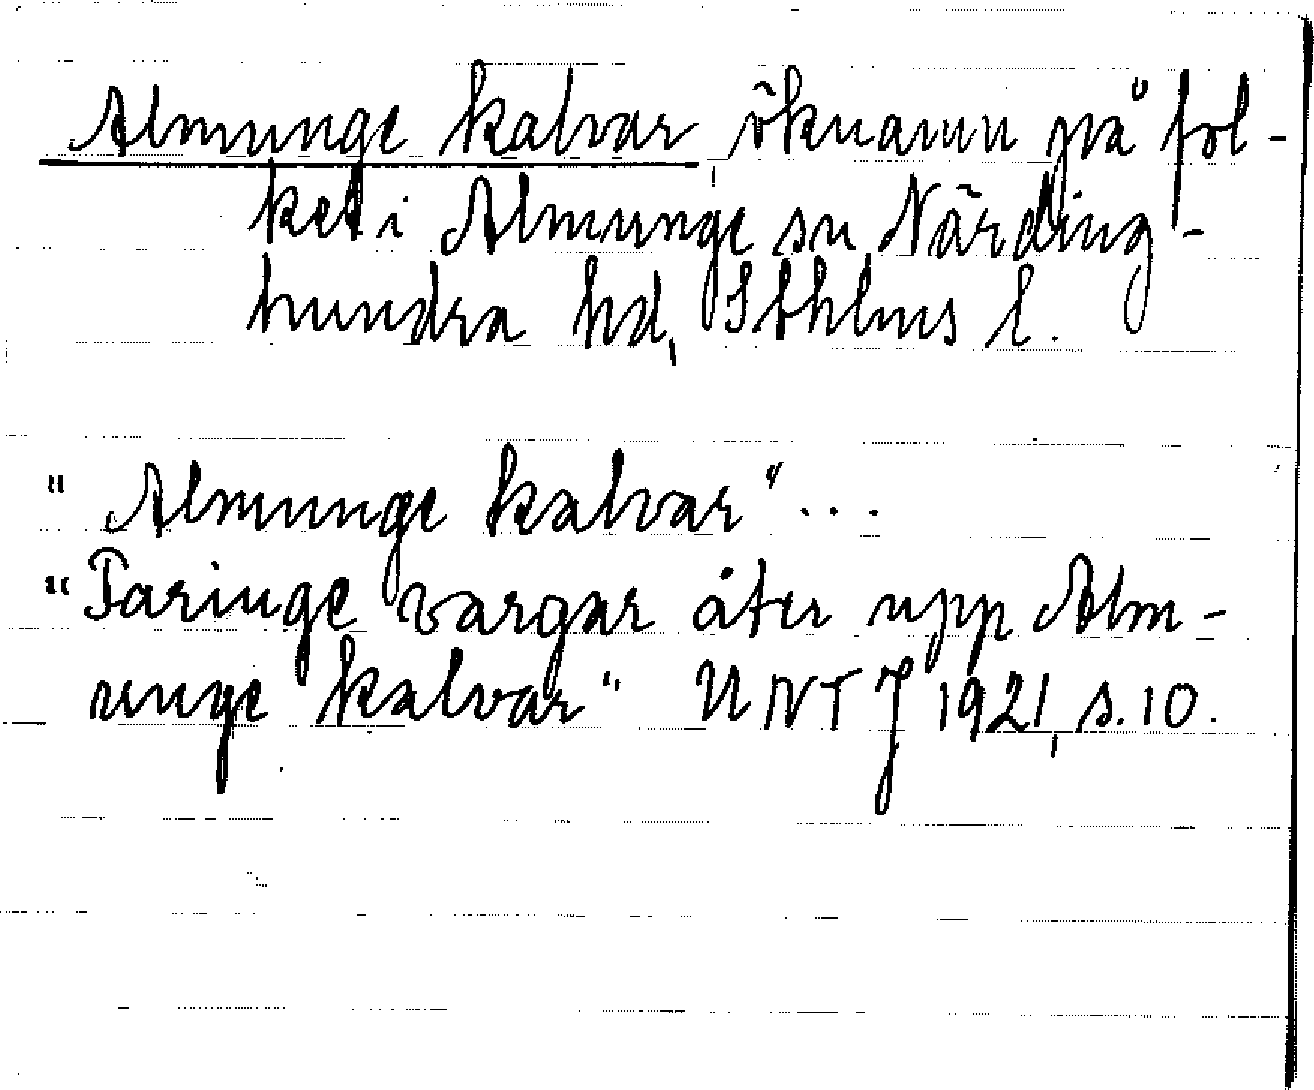 Almunge kalvar, öknamn på fol-
ket i Almunge sn Närding-
hundra hd, Sthlms l.
"Almunge kalvar" ...
"Faringe vargar åter upp Alm-
unge kalvar" UNT J 1921, s. 10.